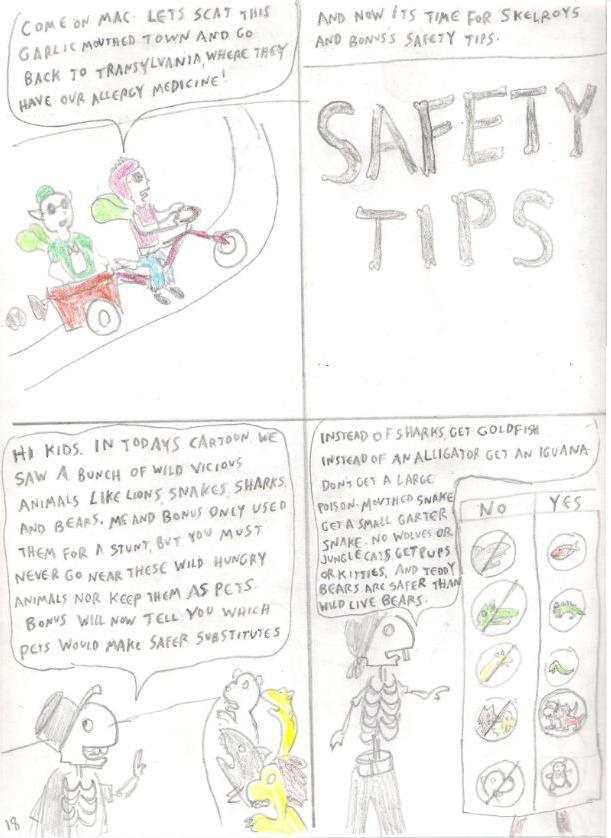 COME ON MAC. LETS SCAT THIS
GARLIC MOUTHED TOWN AND GO
BACK TO TRANSYLVANIA, WHERE THEY
HAVE OUR ALLERGY MEDICINE!
AND NOW ITS TIME FOR SKELROYS
AND BONUS'S SAFETY TIPS.
SAFETY
TIPS
HI KIDS. IN TODAYS CARTOON WE
SAW A BUNCH OF WILD VICIOUS
ANIMALS LIKE LIONS, SNAKES, SHARKS,
AND BEARS. ME AND BONUS ONLY USED
THEM FOR A STUNT, BUT YOU MUST
NEVER GO NEAR THESE WILD HUNGRY
ANIMALS NOR KEEP THEM AS PETS.
BONUS WILL NOW TELL YOU WHICH
PETS WOULD MAKE SAFER SUBSTITUTES
INSTEAD OF SHARKS, GET GOLDFISH
INSTEAD OF AN ALLIGATOR GET AN IGUANA
DON'T GET A LARGE
POISON-MOUTHED SNAKE
GET A SMALL GARTER
SNAKE. NO WOLVES OR
JUNGLE CATS, GET PUPS
OR KITTIES, AND TEDDY
BEARS ARE SAFER THAN
WILD LIVE BEARS.
NO YES
18